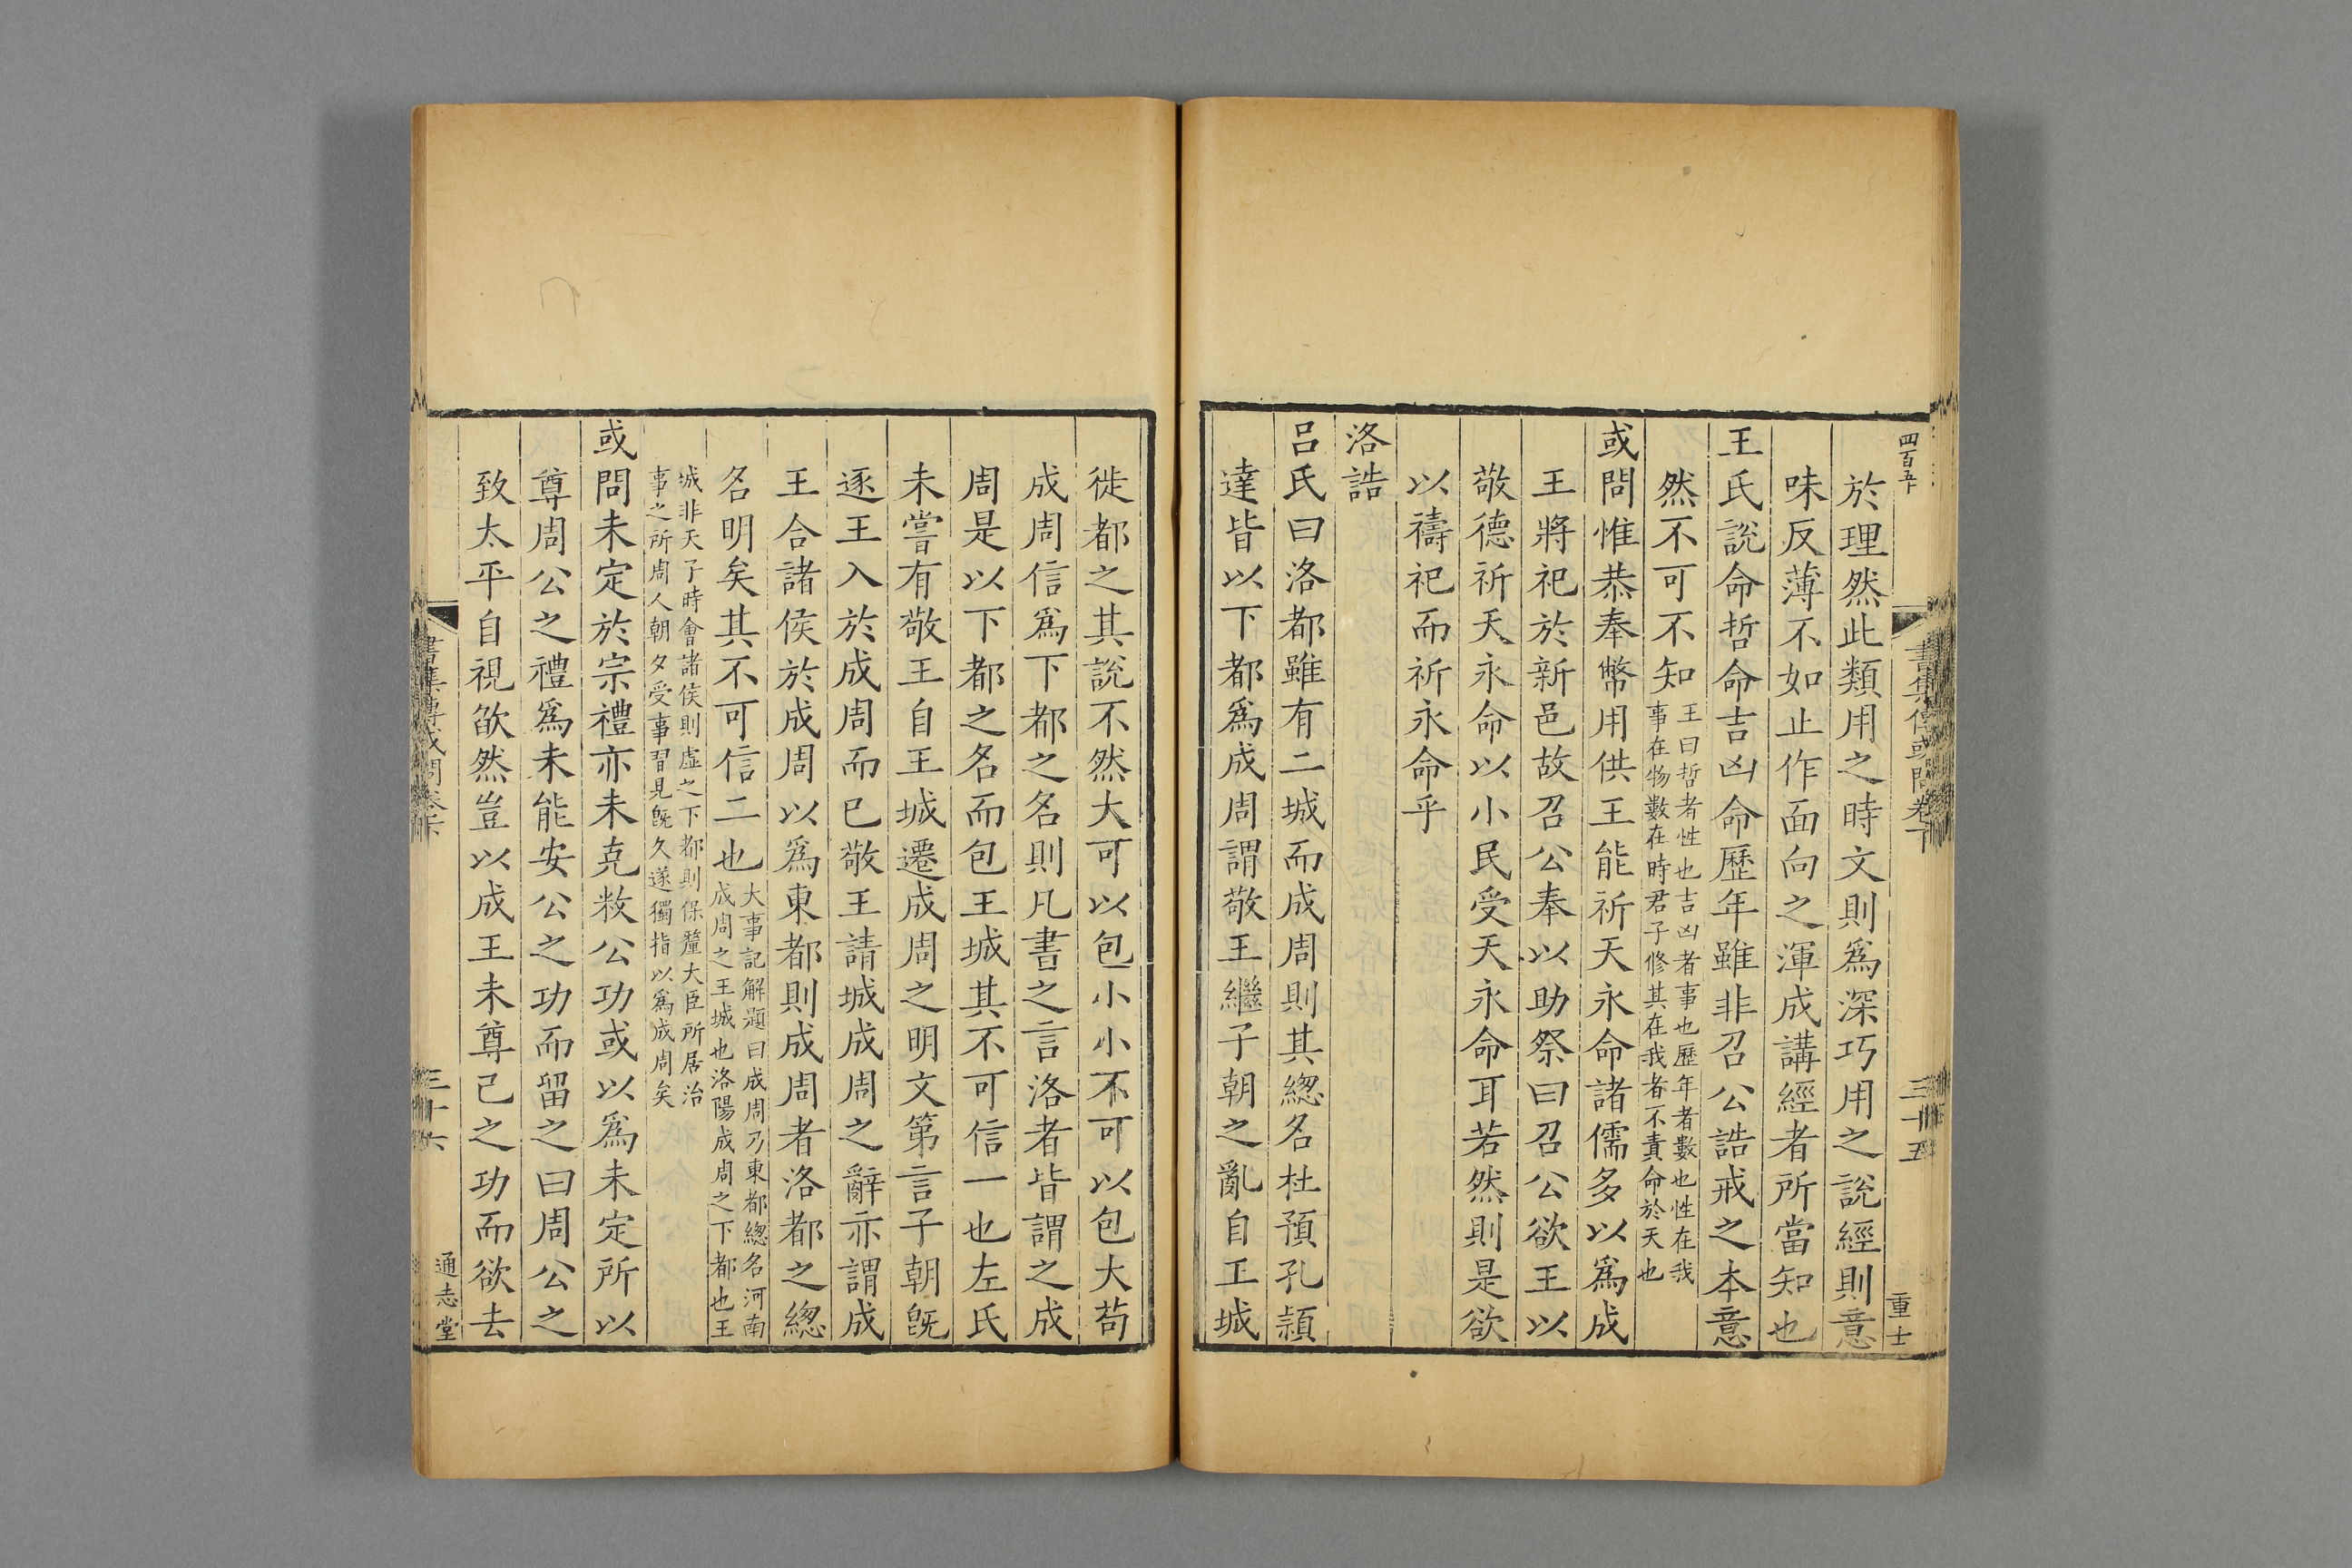 四百五十
書集傳或問卷下
三十五
重士
於理然此類用之時文則爲深巧用之說經則意
味反薄不如止作面向之渾成講經者所當知也
王氏說命哲命吉凶命歷年雖非召公誥戒之本意
然不可不知王曰哲者性也吉凶者事也歷年者數也性在我
事在物數在時君子修其在我者不責命於天也
或問惟恭奉幣用供王能祈天永命諸儒多以爲成
王將祀於新邑故召公奉以助祭曰召公欲王以
敬德祈天永命以小民受天永命耳若然則是欲
以禱祀而祈永命乎
洛誥
呂氏曰洛都雖有二城而成周則其緫名杜預孔頴
達皆以下都爲成周謂敬王繼子朝之亂自王城
徙都之其說不然大可以包小小不可以包大苟
成周信爲下都之名則凡書之言洛者皆謂之成
周是以下都之名而包王城其不可信一也左氏
未嘗有敬王自王城遷成周之明文第言子朝旣
逐王入於成周而已敬王請城成周之辭亦謂成
王合諸侯於成周以爲東都則成周者洛都之緫
名明矣其不可信二也大事記解題曰成周乃東都緫名河南
成周之王城也洛陽成周之下都也王
城非天子時會諸侯則虛之下都則保釐大臣所居治
事之所周人朝夕受事習見旣久遂獨指以爲成周矣
或問未定於宗禮亦未克敉公功或以爲未定所以
尊周公之禮爲未能安公之功而留之曰周公之
致太平自視欿然豈以成王未尊己之功而欲去
書集傳或問卷下
三十六
通志堂